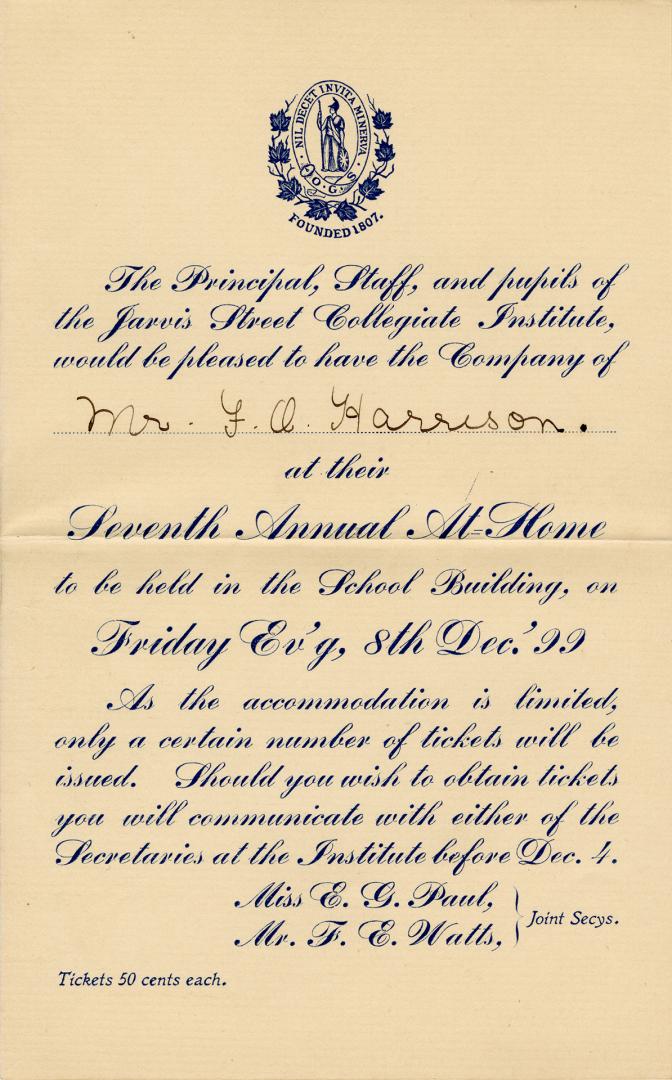 NIL DECET INVITA MINERVA
T.O.G.S
FOUNDED 1807.
The Principal, Staff, and pupils of
the Jarvis Street Collegiate Institute,
would be pleased to have the Company of
Mr. F. O. Harrison.
at their
Seventh Annual At-Home
to be held in the School Building, on
Friday Ev'g, 8th Dec. '99
As the accommodation is limited,
only a certain number of tickets will be
issued. Should you wish to obtain tickets
you will communicate with either of the
Secretaries at the Institute before Dec. 4.
Miss E. G. Paul,
Mr. F. E. Watts, } Joint Secys.
Tickets 50 cents each.